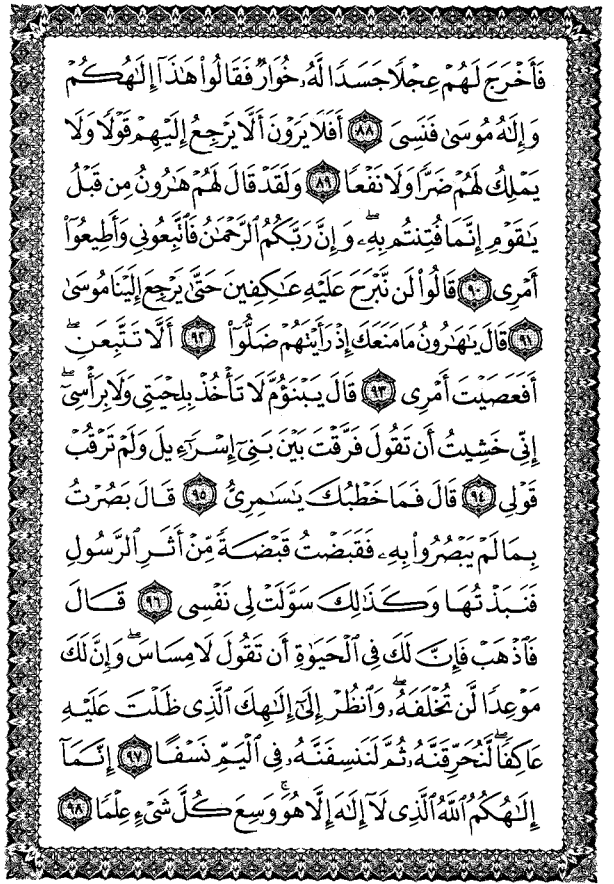 فَأَخْرَجَ لَهُمْ عِجْلًا جَسَدًا لَّهُۥ خُوَارٌ فَقَالُوا۟ هَٰذَآ إِلَٰهُكُمْ
وَإِلَٰهُ مُوسَىٰ فَنَسِىَ ٨٨ أَفَلَا يَرَوْنَ أَلَّا يَرْجِعُ إِلَيْهِمْ قَوْلًا وَلَا
يَمْلِكُ لَهُمْ ضَرًّا وَلَا نَفْعًا ٨٩ وَلَقَدْ قَالَ لَهُمْ هَٰرُونُ مِن قَبْلُ
يَٰقَوْمِ إِنَّمَا فُتِنتُم بِهِۦ ۖ وَإِنَّ رَبَّكُمُ ٱلرَّحْمَٰنُ فَٱتَّبِعُونِى وَأَطِيعُوٓا۟
أَمْرِى ٩٠ قَالُوا۟ لَن نَّبْرَحَ عَلَيْهِ عَٰكِفِينَ حَتَّىٰ يَرْجِعَ إِلَيْنَا مُوسَىٰ
٩١ قَالَ يَٰهَٰرُونُ مَا مَنَعَكَ إِذْ رَأَيْتَهُمْ ضَلُّوٓا۟ ٩٢ أَلَّا تَتَّبِعَنِ ۖ
أَفَعَصَيْتَ أَمْرِى ٩٣ قَالَ يَبْنَؤُمَّ لَا تَأْخُذْ بِلِحْيَتِى وَلَا بِرَأْسِىٓ ۖ
إِنِّى خَشِيتُ أَن تَقُولَ فَرَّقْتَ بَيْنَ بَنِىٓ إِسْرَٰٓءِيلَ وَلَمْ تَرْقُبْ
قَوْلِى ٩٤ قَالَ فَمَا خَطْبُكَ يَٰسَٰمِرِىُّ ٩٥ قَالَ بَصُرْتُ
بِمَا لَمْ يَبْصُرُوا۟ بِهِۦ فَقَبَضْتُ قَبْضَةً مِّنْ أَثَرِ ٱلرَّسُولِ
فَنَبَذْتُهَا وَكَذَٰلِكَ سَوَّلَتْ لِى نَفْسِى ٩٦ قَالَ
فَٱذْهَبْ فَإِنَّ لَكَ فِى ٱلْحَيَوٰةِ أَن تَقُولَ لَا مِسَاسَ ۖ وَإِنَّ لَكَ
مَوْعِدًا لَّن تُخْلَفَهُۥ ۖ وَٱنظُرْ إِلَىٰٓ إِلَٰهِكَ ٱلَّذِى ظَلْتَ عَلَيْهِ
عَاكِفًا ۖ لَّنُحَرِّقَنَّهُۥ ثُمَّ لَنَنسِفَنَّهُۥ فِى ٱلْيَمِّ نَسْفًا ٩٧ إِنَّمَآ
إِلَٰهُكُمُ ٱللَّهُ ٱلَّذِى لَآ إِلَٰهَ إِلَّا هُوَ ۚ وَسِعَ كُلَّ شَىْءٍ عِلْمًا ٩٨